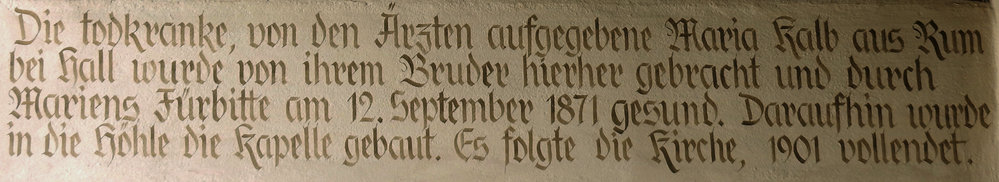 Die todkranke, von den Ärzten aufgegebene Maria Kalb aus Rum
bei Hall wurde von ihrem Bruder hierher gebracht und durch
Mariens Fürbitte am 12. September 1871 gesund. Daraufhin wurde
in die Höhle die Kapelle gebaut. Es folgte die Kirche, 1901 vollendet.